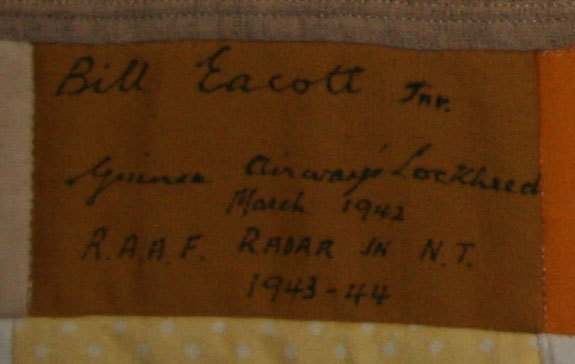 Bill Eacott Jnr.
Guinea Airways' Lockheed
March 1942
R.A.A.F. RADAR IN N.T.
1943-44